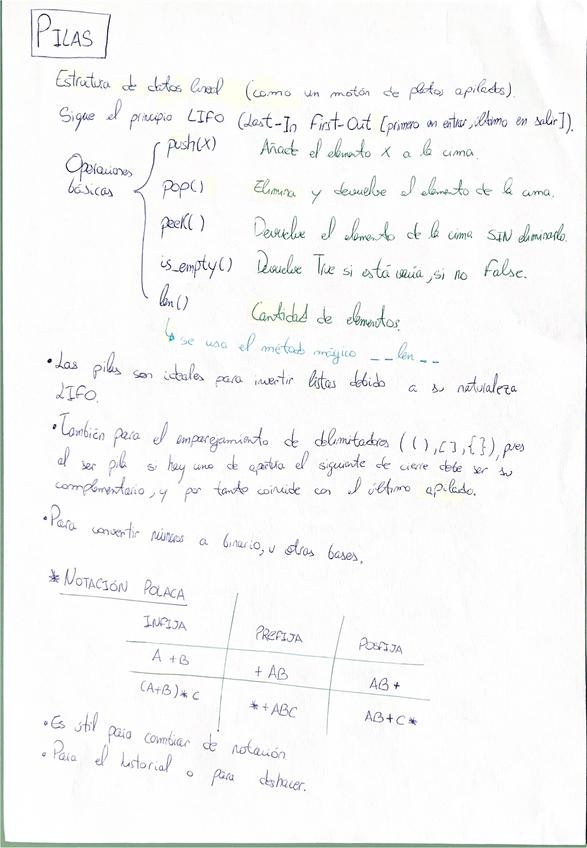 PILAS
Estructura de datos lineal (como un montón de platos apilados).
Sigue el principio LIFO (Last-In First-Out [primero en entrar, último en salir]).
Operaciones básicas
push(X) Añade el elemento X a la cima.
pop() Elimina y devuelve el elemento de la cima.
peek() Devuelve el elemento de la cima SIN eliminarlo.
is_empty() Devuelve True si está vacía, si no False.
len() Cantidad de elementos.
↳ se usa el método mágico __len__
• Las pilas son ideales para invertir listas debido a su naturaleza
LIFO.
• También para el emparejamiento de delimitadores ((), [], {}), pues
al ser pila si hay uno de apertura el siguiente de cierre debe ser su
complementario, y por tanto coincide con el último apilado.
• Para convertir números a binario, u otras bases.
* NOTACIÓN POLACA
INFIJA PREFIJA POSFIJA
A + B + AB AB +
(A+B)* C * + ABC AB+C *
• Es útil para cambiar de notación
• Para el historial o para deshacer.